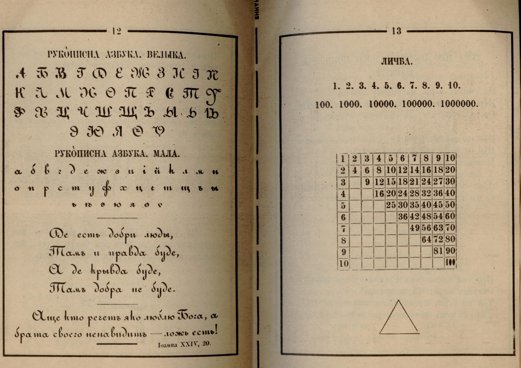 12
РУКОПИСНА АЗБУКА. ВЕЛЫКА.
А Б В Г Д Е Ж З И І Й
К Л М Н О П Р С Т У
Ф Х Ц Ч Ш Щ Ъ Ы Ь Ѣ
Э Ю Я Ѳ Ѵ
РУКОПИСНА АЗБУКА. МАЛА.
а б в г д е ж з и і й к л м н
о п р с т у ф х ц ч ш щ ъ ы
ь ѣ э ю я ѳ ѵ
Де есть добри люды,
Тамъ и правда буде,
А де крывда буде,
Тамъ добра не буде.
Аще кто речетъ яко люблю Бога, а
брата своего ненавидитъ — ложь есть!
Іоанна XXIV, 20.
13
ЛИЧБА.
1. 2. 3. 4. 5. 6. 7. 8. 9. 10.
100. 1000. 10000. 100000. 1000000.
1 2 3 4 5 6 7 8 9 10
2 4 6 8 10 12 14 16 18 20
3 9 12 15 18 21 24 27 30
4 16 20 24 28 32 36 40
5 25 30 35 40 45 50
6 36 42 48 54 60
7 49 56 63 70
8 64 72 80
9 81 90
10 100